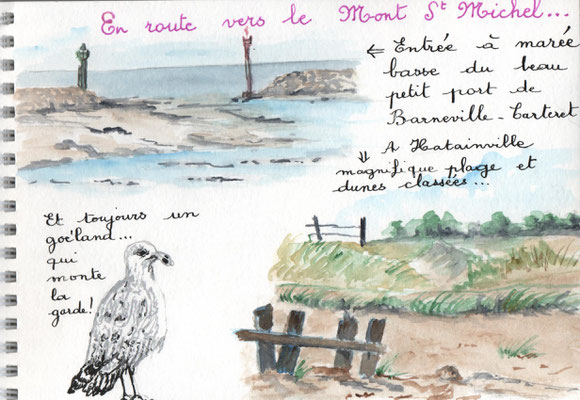 En route vers le Mont St Michel...
⇐ Entrée à marée
basse du beau
petit port de
Barneville-Carteret
A Hatainville
⇓ magnifique plage et
dunes classées...
Et toujours un
goéland...
qui
monte
la
garde!